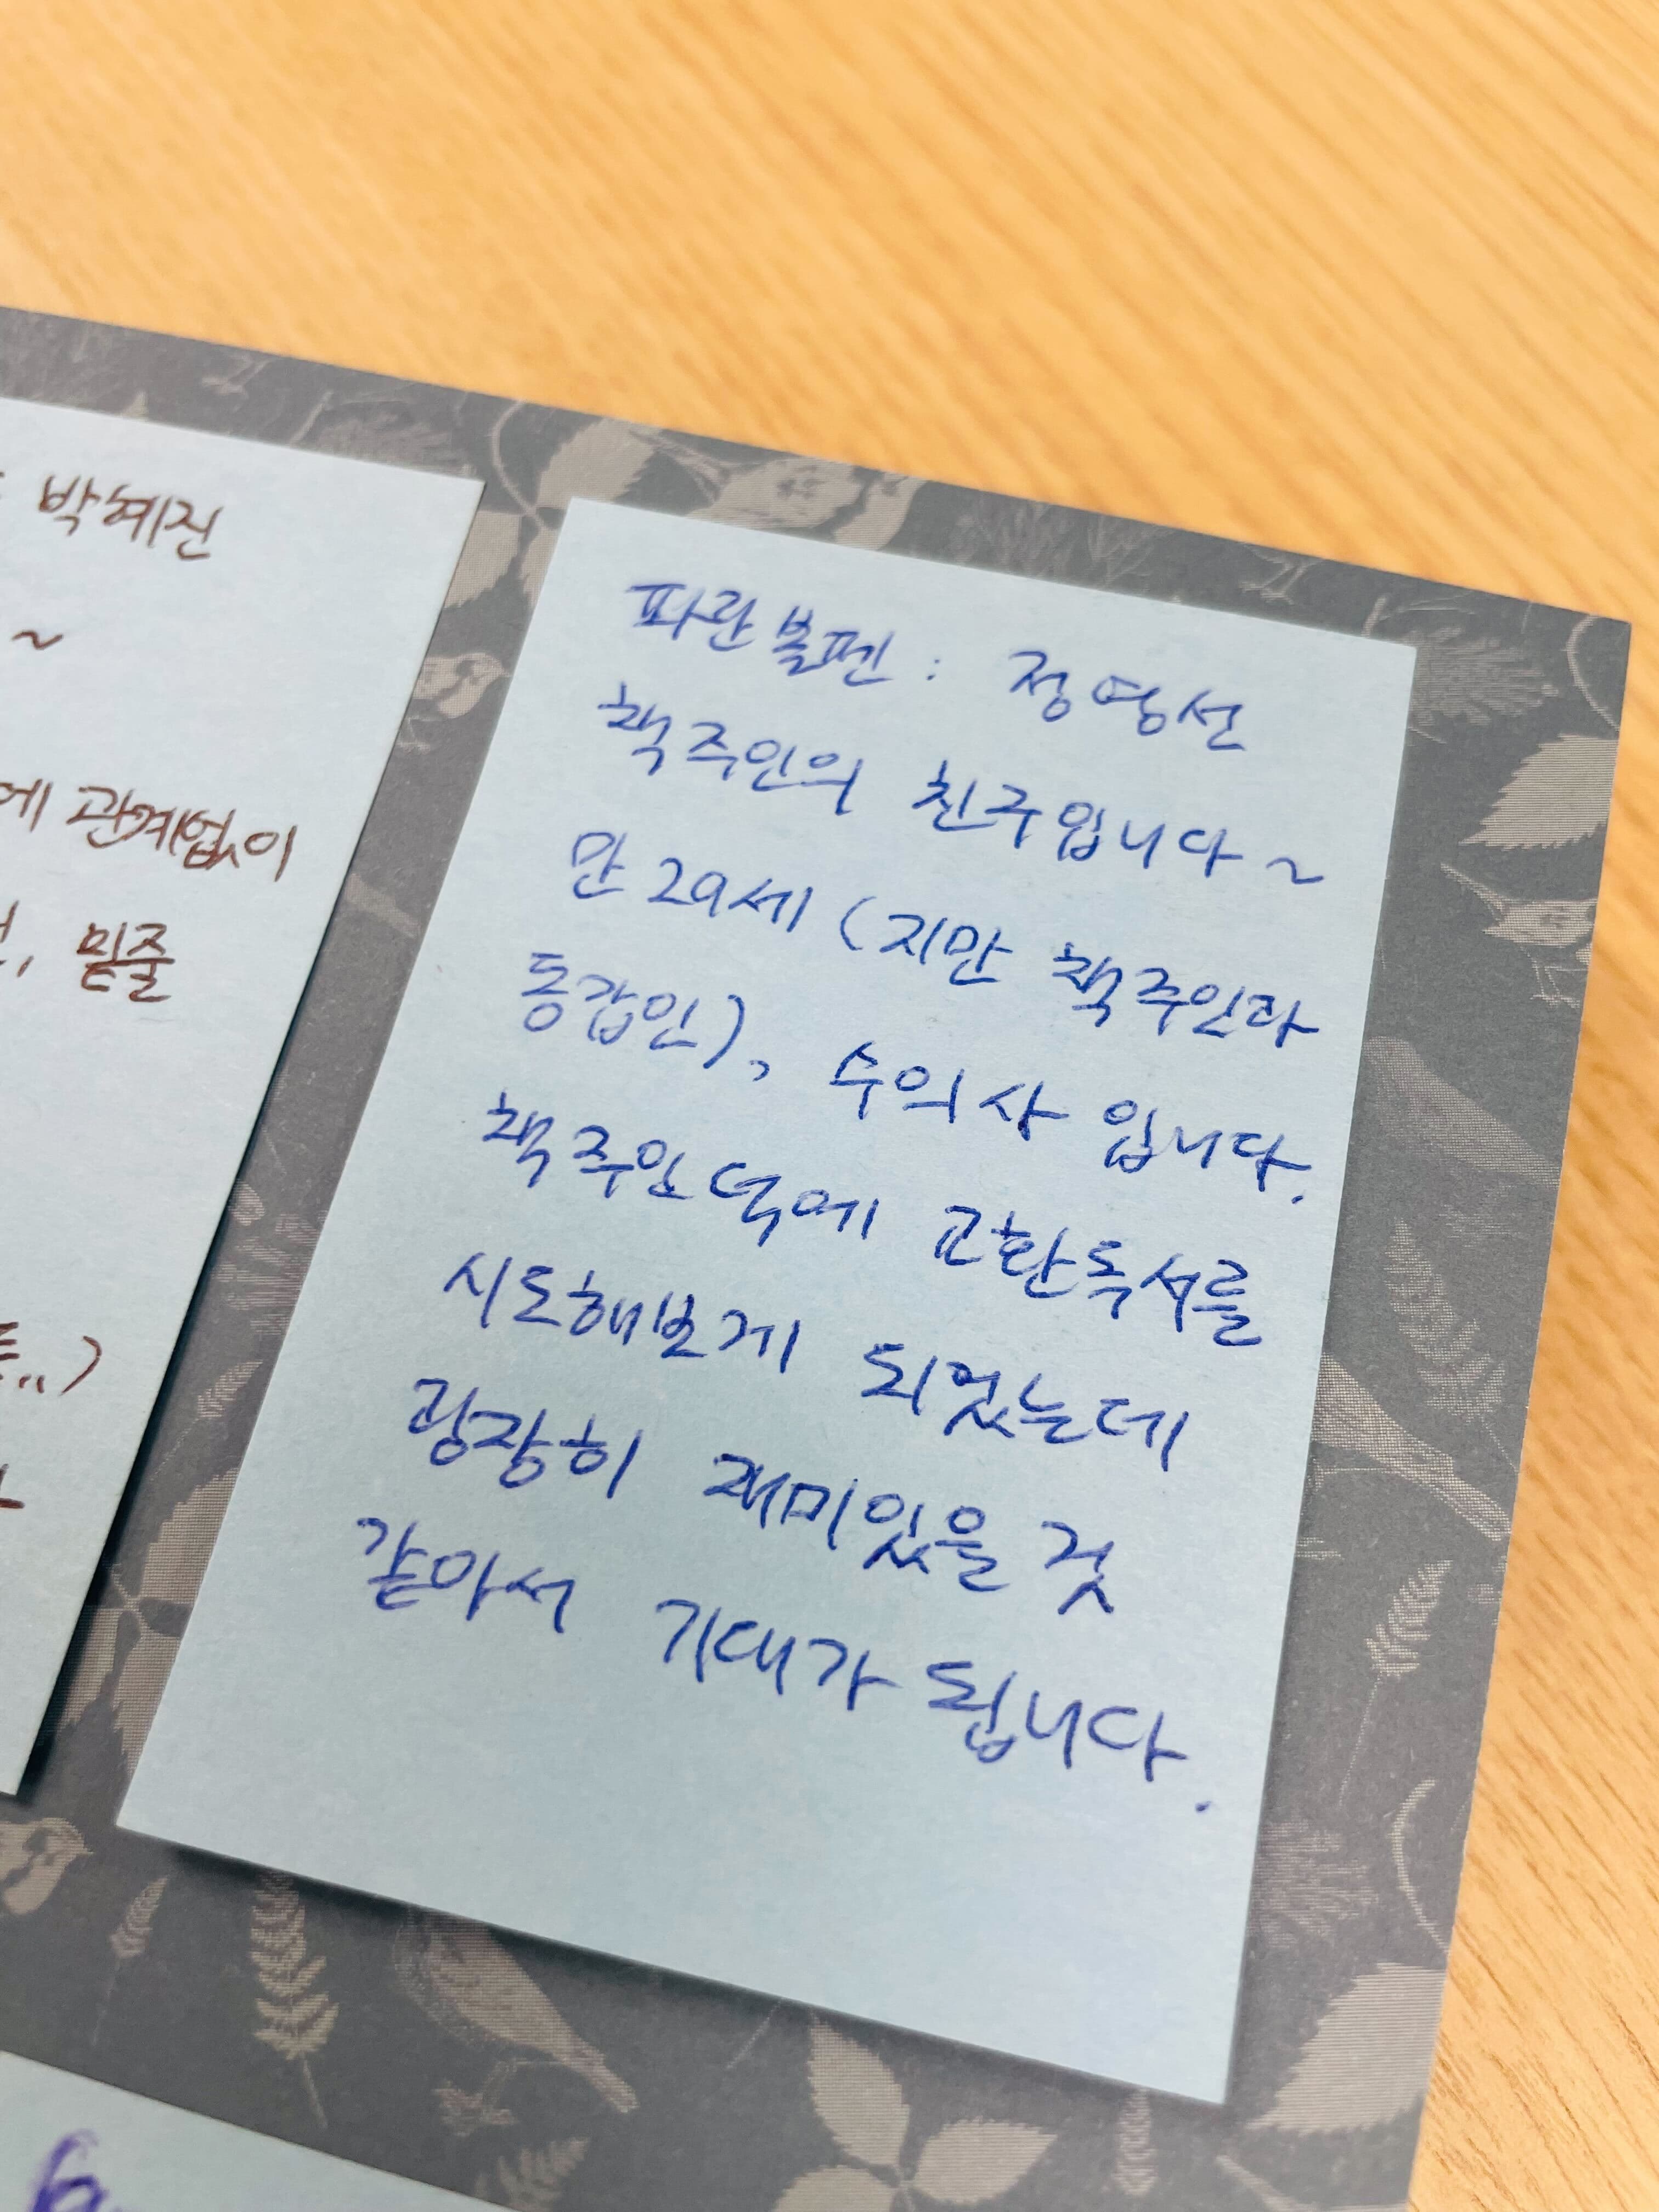 박혜진
~
에 관계없이
, 밑줄
..)
파란볼펜 : 정영선
책주인의 친구입니다~
만 29세 (지만 책주인과
동갑인), 수의사 입니다.
책주인덕에 교환독서를
시도해보게 되었는데
굉장히 재미있을 것
같아서 기대가 됩니다.